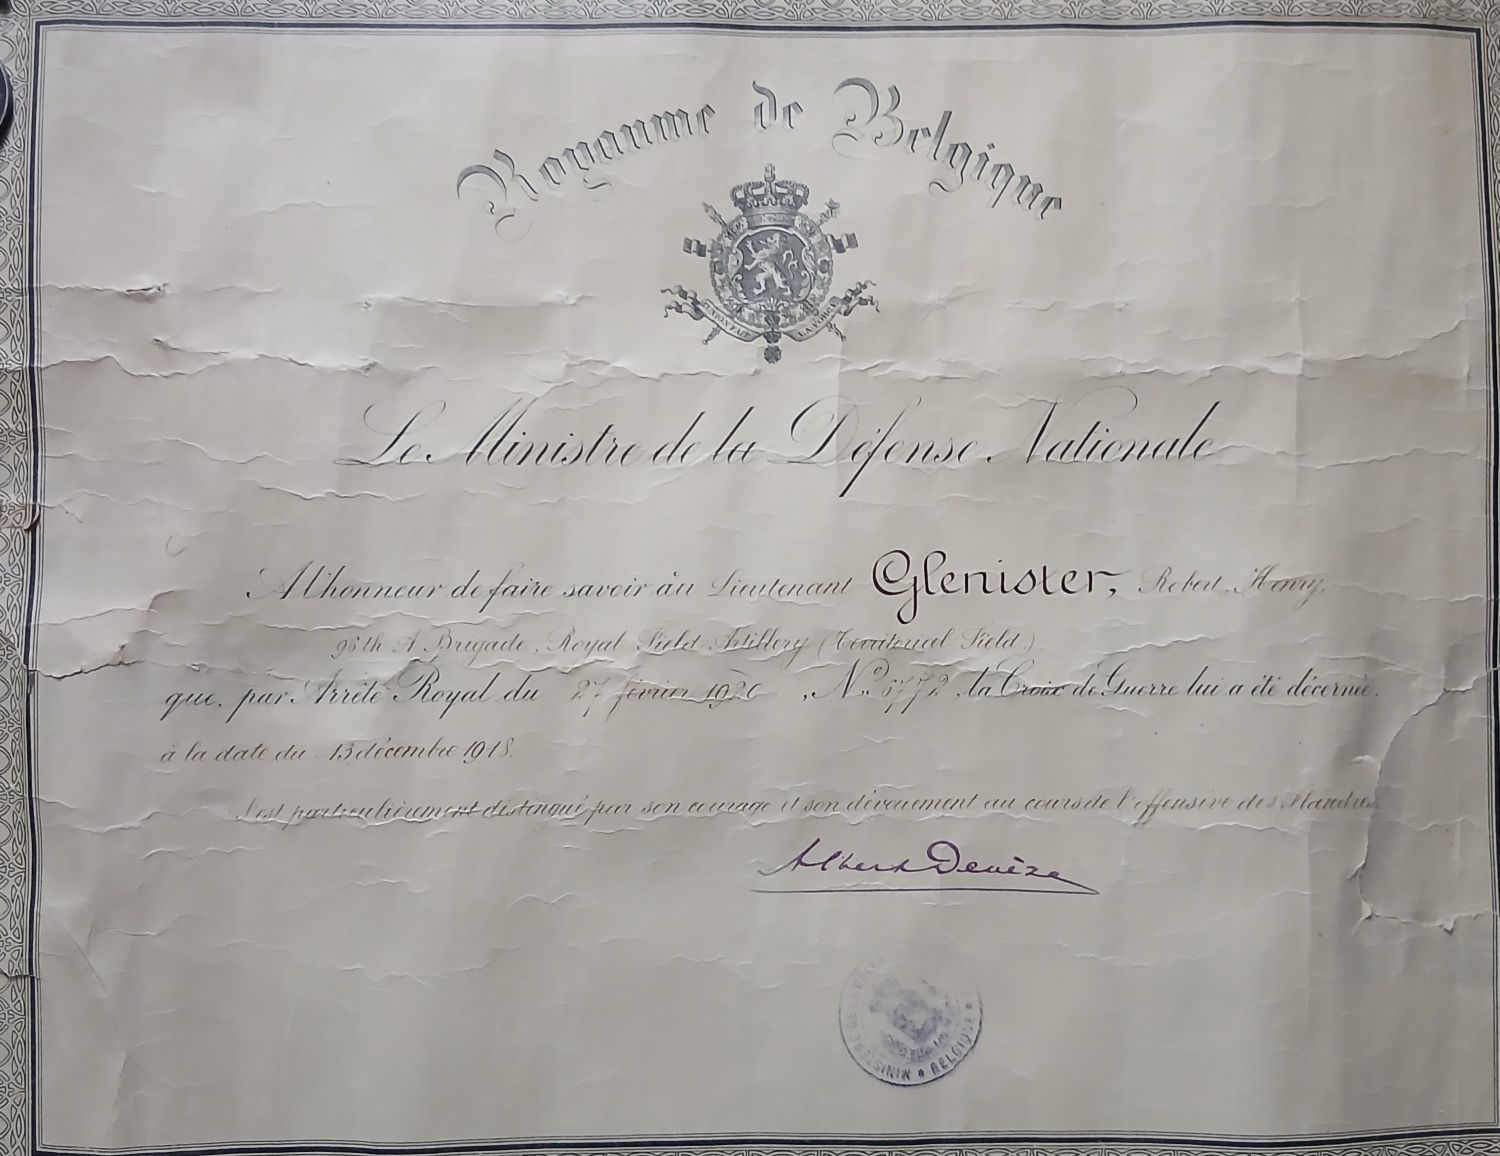 Royaume de Belgique
L'UNION FAIT LA FORCE
Le Ministre de la Défense Nationale
A l'honneur de faire savoir au Lieutenant Glenister, Robert, Henry,
96th A Brigade, Royal Field Artillery (Territorial Field)
que, par Arrêté Royal du 27 février 1920, N° 5772, la Croix de Guerre lui a été décernée.
à la date du 13 décembre 1918.
S'est particulièrement distingué par son courage et son dévouement au cours de l'offensive des Flandres.
Albert Devèze
MINISTERE DE LA BELGIQUE